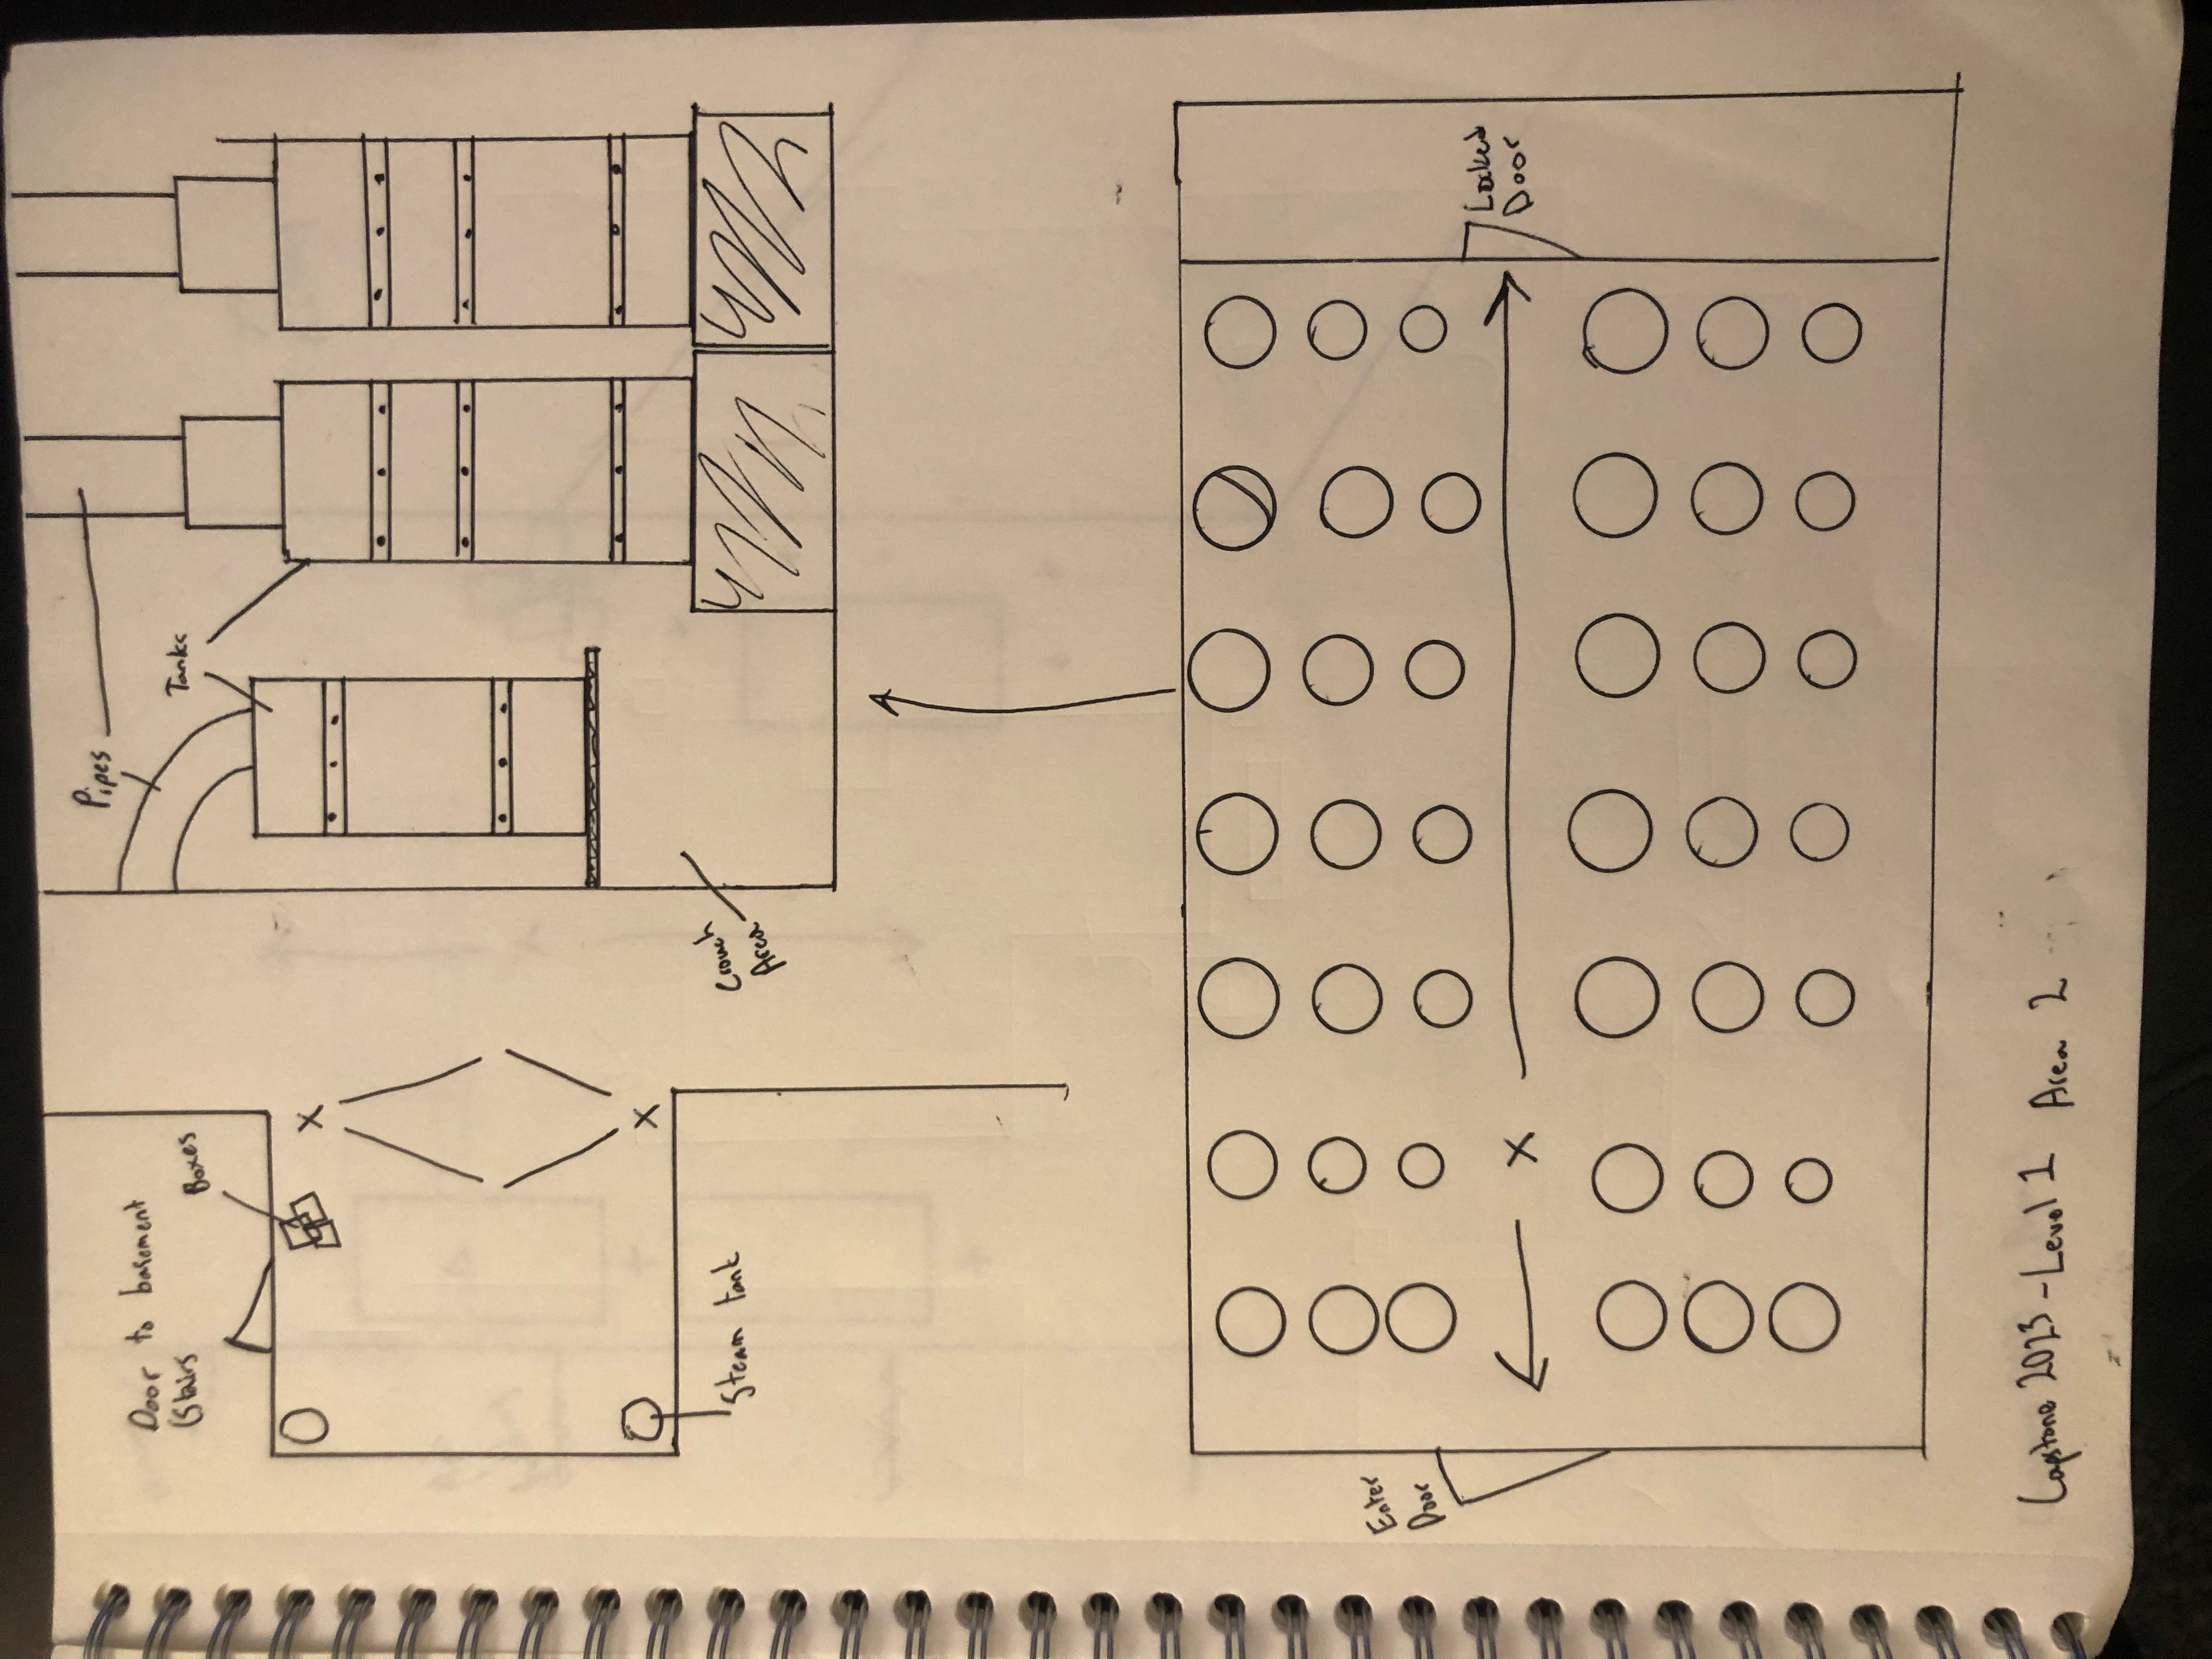 Door to basement
(Stairs
Boxes
Steam tank
Pipes
Tanks
Crouch
Area
Enter
Door
Locked
Door
Capstone 2023 - Level 1 Area 2